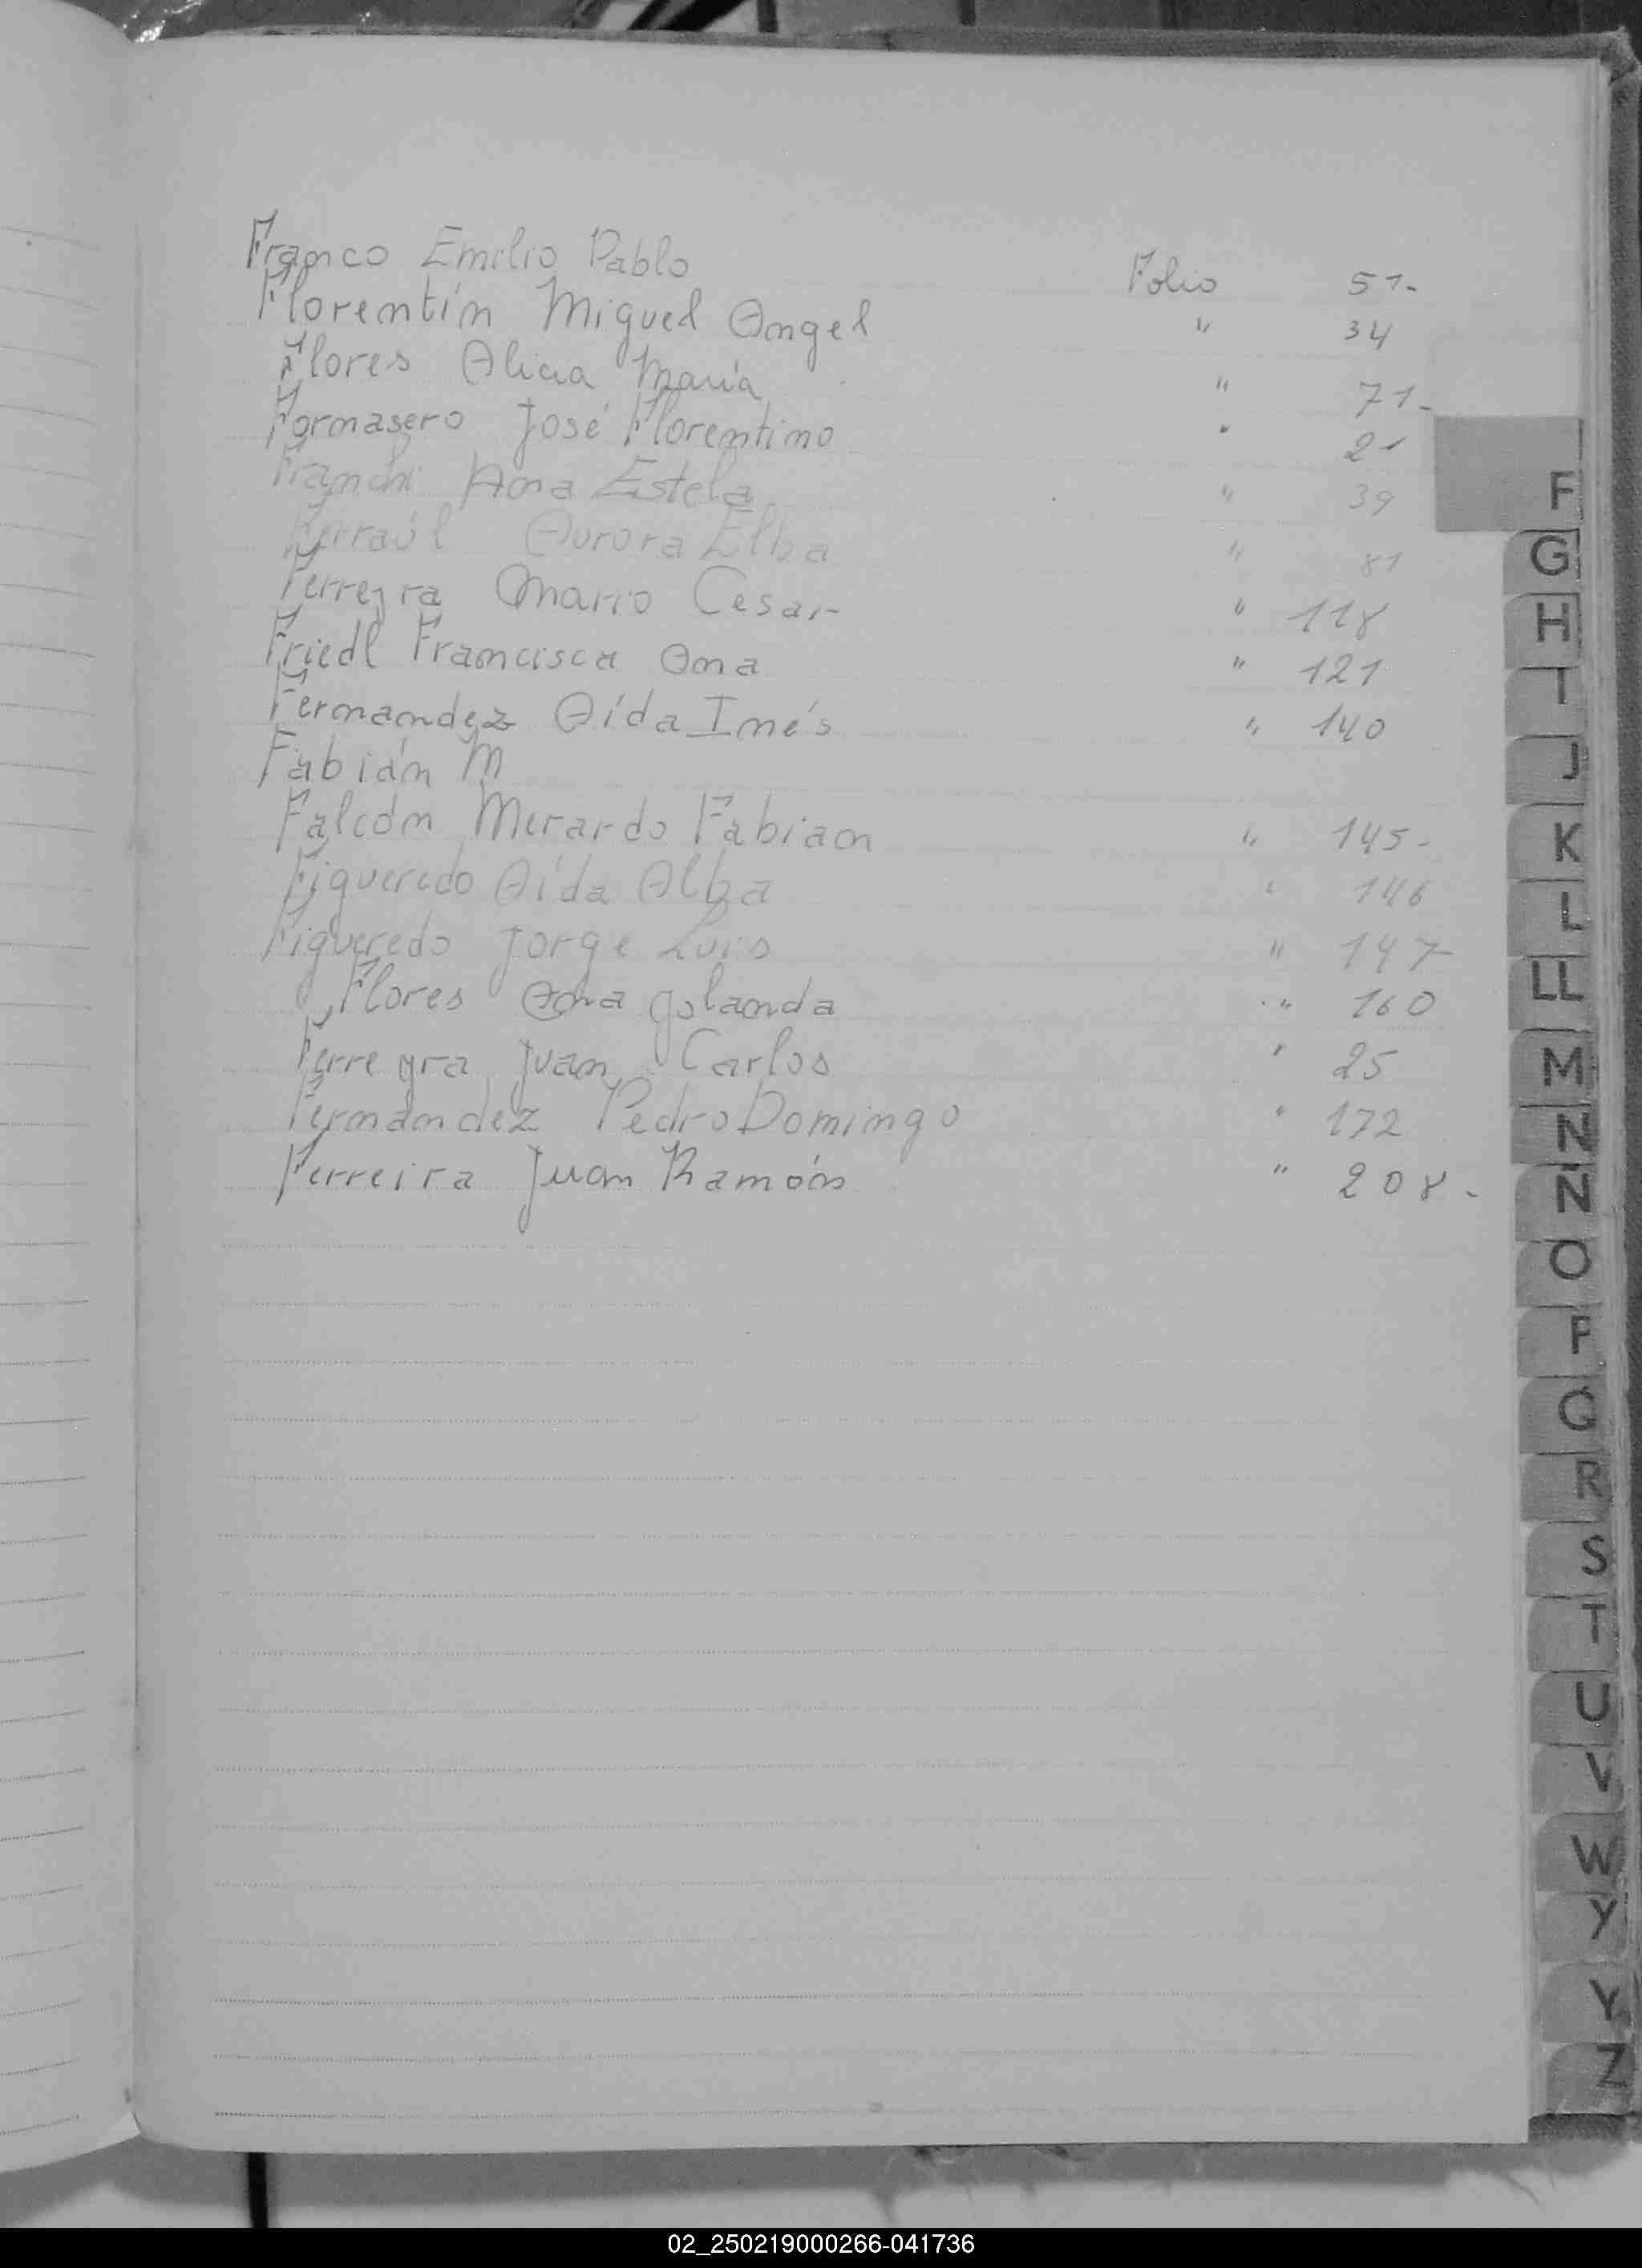 Franco Emilio Pablo Folio 51-
Florentín Miguel Angel " 34
Flores Alicia María " 71-
Fornasero José Florentino " 21
Franchi Ana Estela " 39
Ferraúl Aurora Elba " 81
Ferreyra Mario Cesar " 118
Friedl Francisca Ana " 121
Fernandez Aída Inés " 140
Fabián M
Falcón Merardo Fabian " 145-
Figueredo Aída Alba " 146
Figueredo Jorge Luis " 147
Flores Ana Yolanda " 160
Ferreyra Juan Carlos " 25
Fernández Pedro Domingo " 172
Ferreira Juan Ramón " 208-
F
G
H
I
J
K
L
LL
M
N
Ñ
O
P
Q
R
S
T
U
V
W
Y
Y
Z
02_250219000266-041736